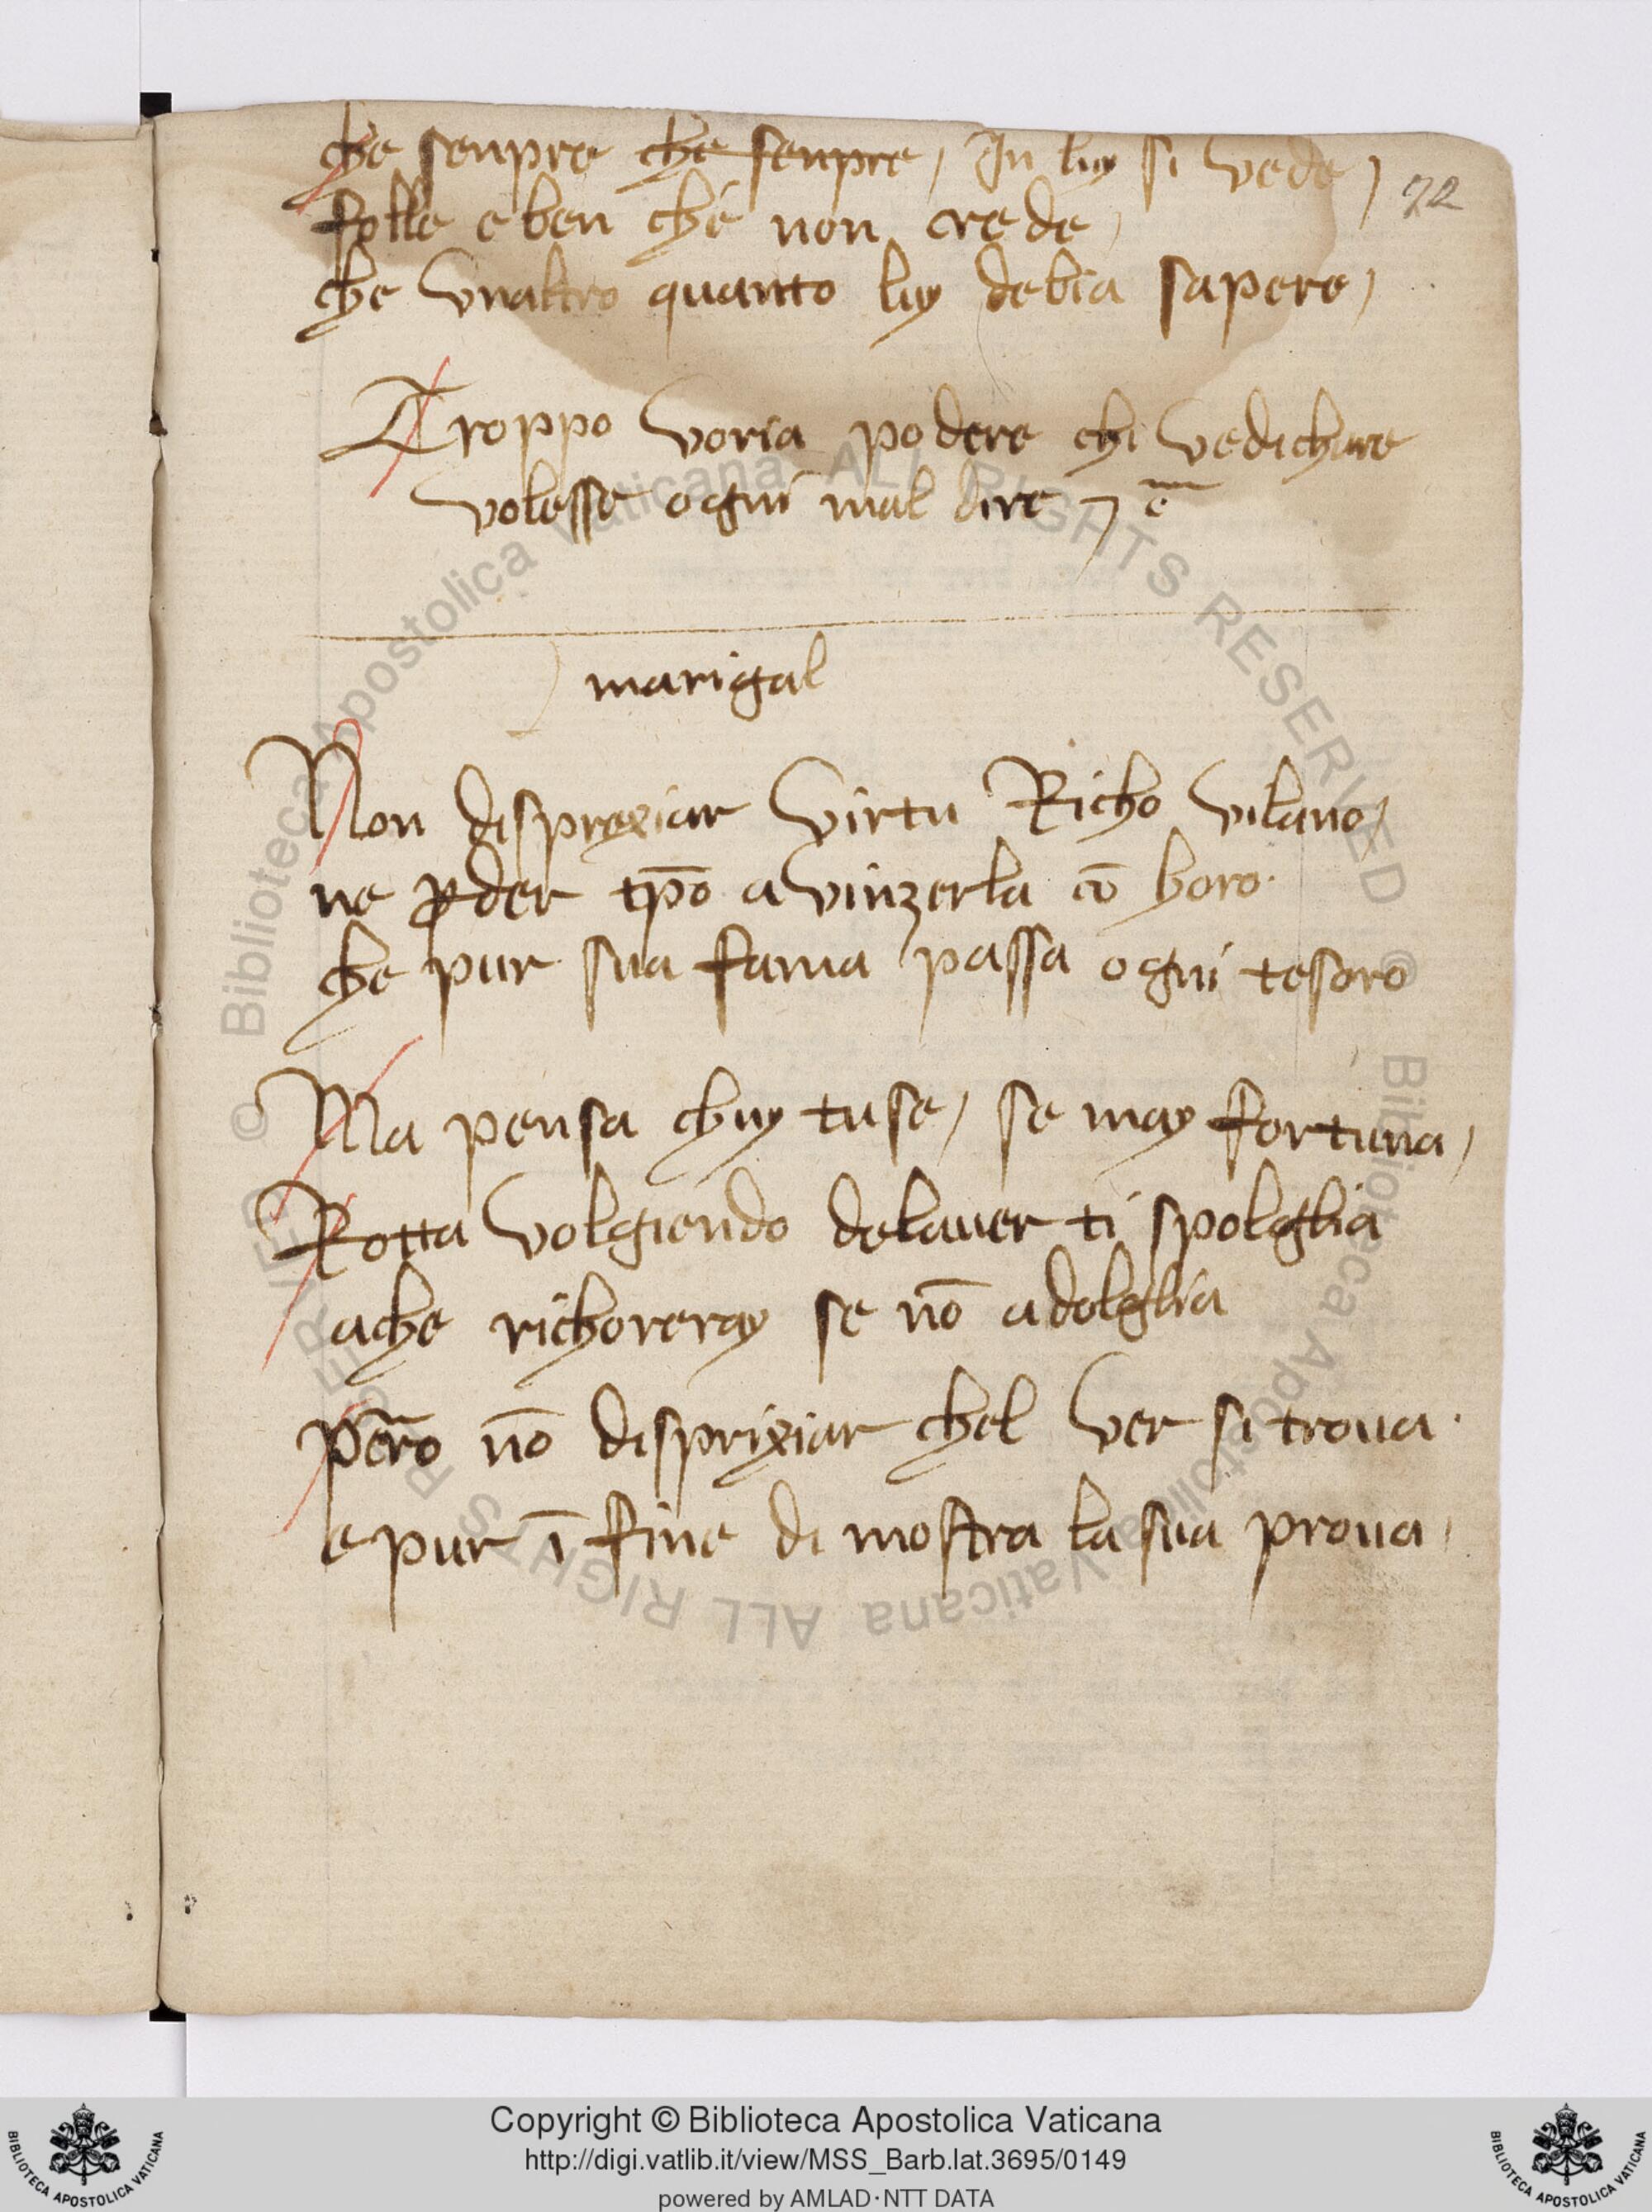 che senpre che senpre, In luy si vede,
72
folle e ben che non crede,
che vnaltro quanto luy debia sapere,
Troppo voria podere chi vedichare
volesse ogni mal dire
marigal
Non disprexiar virtu Richo vilano,
ne ꝑder tp̄o a vinzerla cō horo
che pur sua fama passa ogni tesoro
Ma pensa chuy tu se, se may fortuna,
Rotta volgiendo delauer ti spolglia
a che richoreray se nō a dolglia
però nō disprixiar chel ver si troua
e pur ī fine di mostra la sua proua
© Biblioteca Apostolica Vaticana ALL RIGHTS RESERVED © Biblioteca Apostolica Vaticana ALL RIGHTS RESERVED
Copyright © Biblioteca Apostolica Vaticana
http://digi.vatlib.it/view/MSS_Barb.lat.3695/0149
powered by AMLAD·NTT DATA
BIBLIOTECA APOSTOLICA VATICANA
BIBLIOTECA APOSTOLICA VATICANA